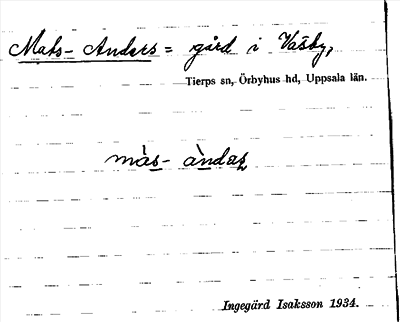 Mats-Anders = gård i Väsby,
Tierps sn, Örbyhus hd, Uppsala län.
màs- àndaṣ
Ingegärd Isaksson 1934.